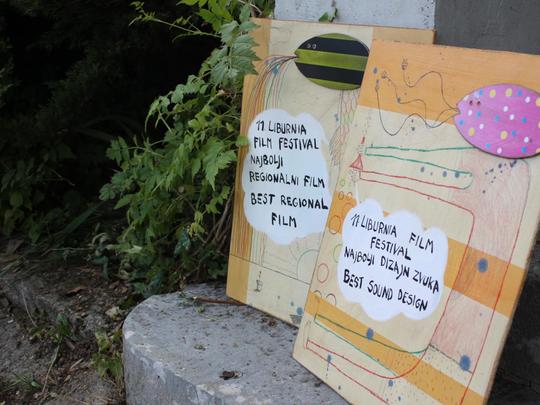 11. LIBURNIA
FILM FESTIVAL
NAJBOLJI
REGIONALNI FILM
BEST REGIONAL
FILM
11. LIBURNIA FILM
FESTIVAL
NAJBOLJI DIZAJN ZVUKA
BEST SOUND DESIGN